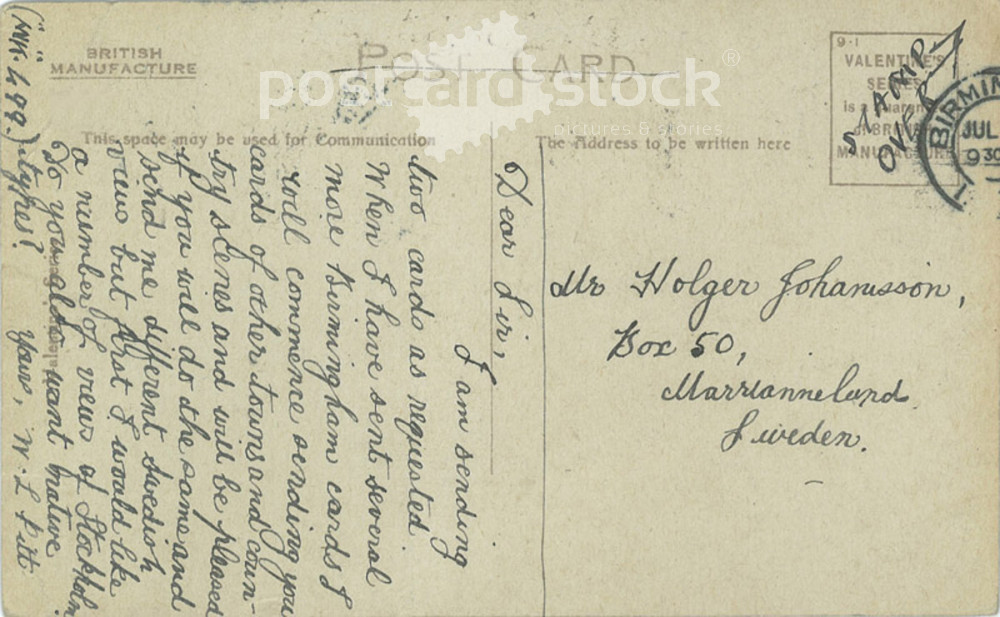 BRITISH
MANUFACTURE
POST CARD
postcard stock
®
pictures & stories
This space may be used for Communication
The Address to be written here
9·1
VALENTINE'S
SERIES
is a Guaran
of BRI
MANUFACTURE
STAMP
OVER
BIRMIN
JUL
9 30
Dear Sir,
I am sending
two cards as requested
When I have sent several
more Birmingham cards I
will commence sending you
cards of other towns and coun-
try scenes and will be pleased
if you will do the same and
send me different Swedish
views but first I would like
a number of views of Stockholm
Do you also want native
types?
Yours, W. L. Pitt
Mr Holger Johansson,
Box 50,
Marrianneland
Sweden.